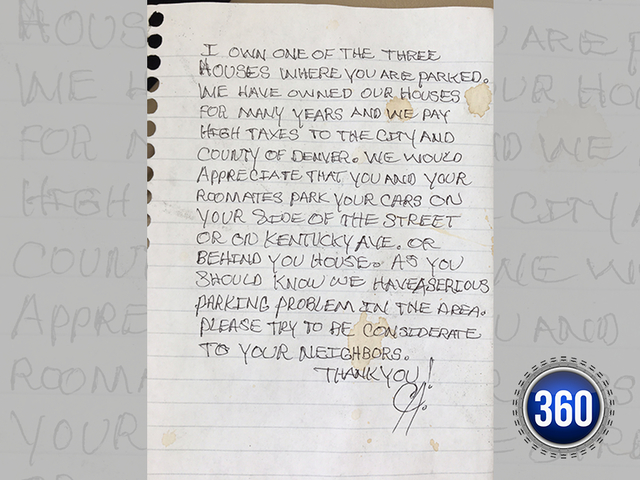 I OWN ONE OF THE THREE
HOUSES WHERE YOU ARE PARKED.
WE HAVE OWNED OUR HOUSES
FOR MANY YEARS AND WE PAY
HIGH TAXES TO THE CITY AND
COUNTY OF DENVER. WE WOULD
APPRECIATE THAT YOU AND YOUR
ROOMATES PARK YOUR CARS ON
YOUR SIDE OF THE STREET
OR ON KENTUCKY AVE. OR
BEHIND YOU HOUSE. AS YOU
SHOULD KNOW WE HAVE A SERIOUS
PARKING PROBLEM IN THE AREA.
PLEASE TRY TO BE CONSIDERATE
TO YOUR NEIGHBORS.
THANK YOU!
360